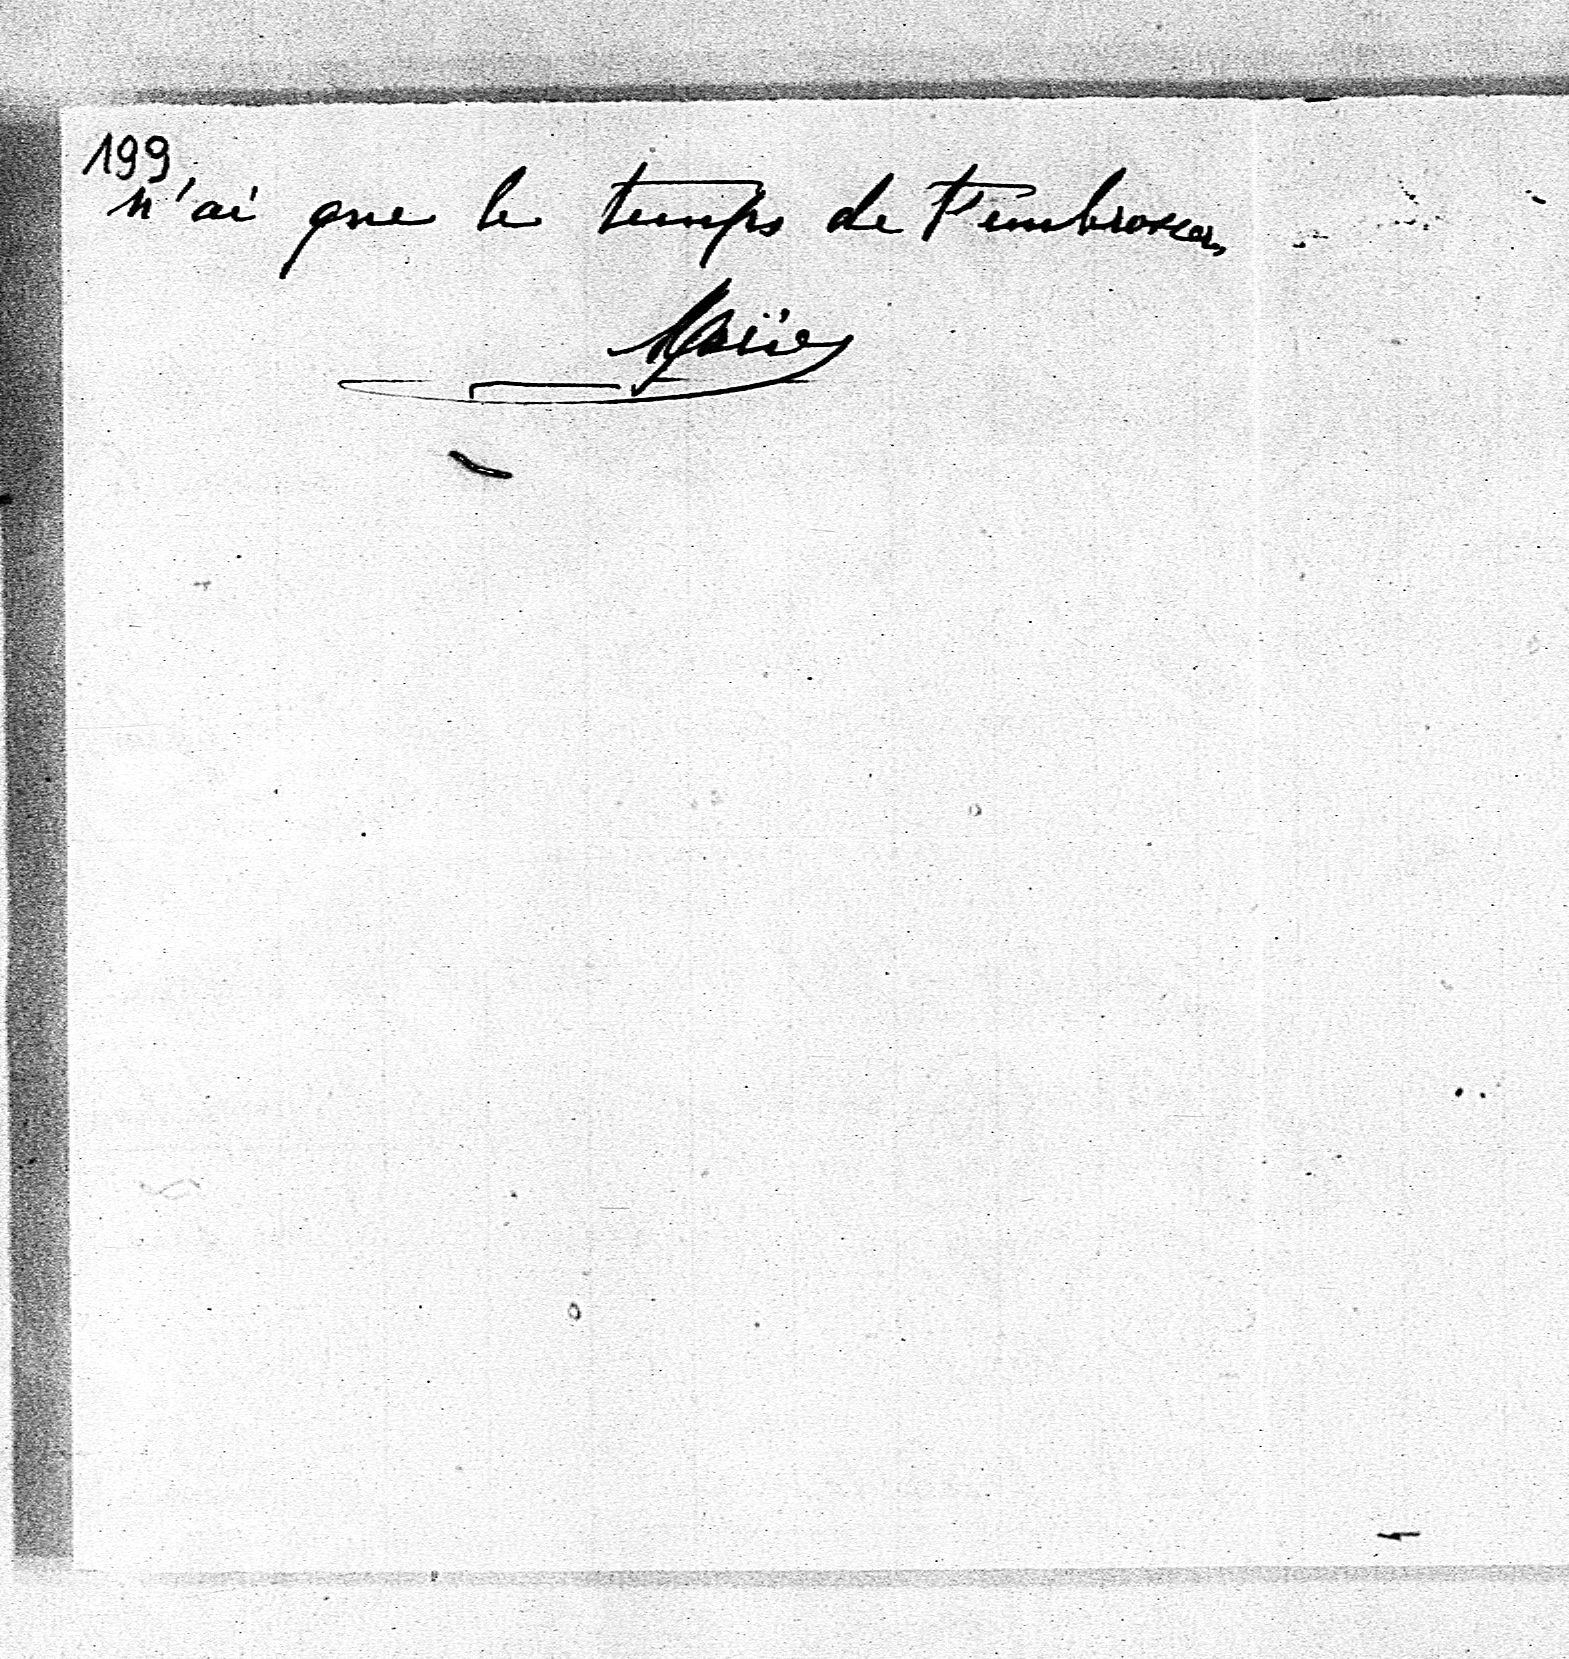 199
n'ai que le temps de t'embrasser,